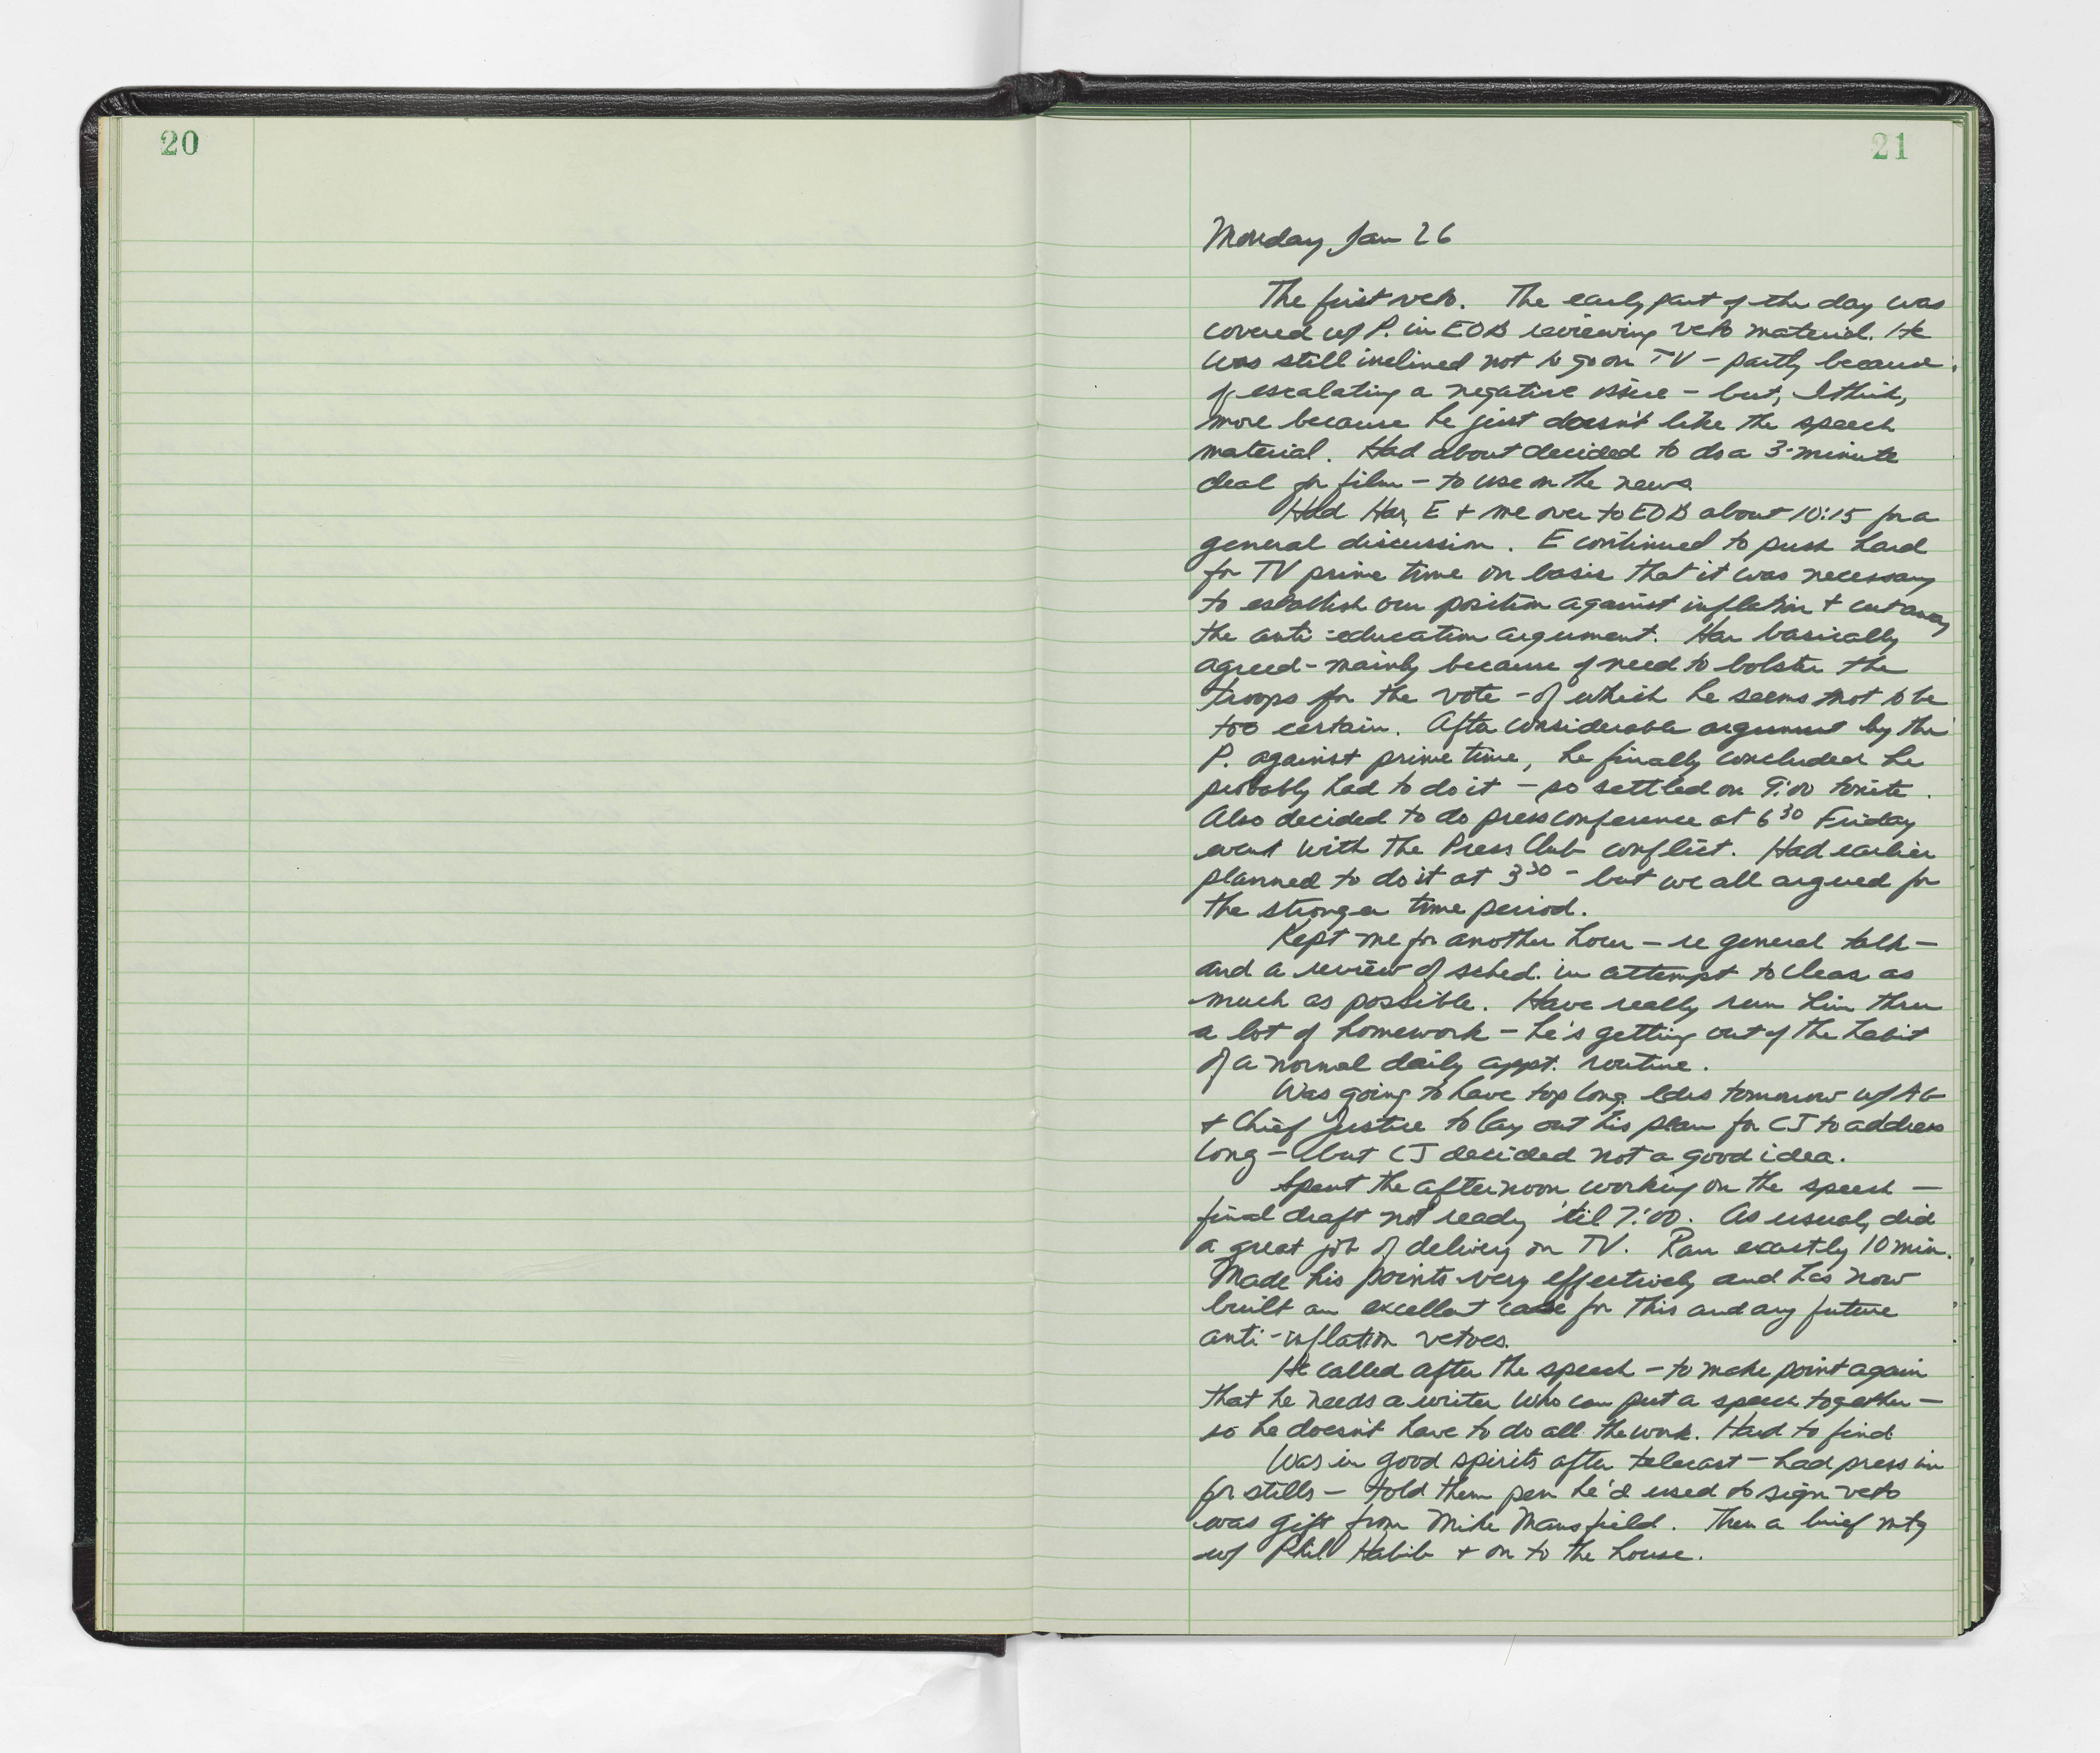 20
21
Monday Jan 26
The first veto. The early part of the day was
covered w/ P. in EOB reviewing veto material. He
was still inclined not to go on TV - partly because
of escalating a negative issue - but, I think,
more because he just doesn't like the speech
material. Had about decided to do a 3-minute
deal for film - to use on the news.
Had Har, E + me over to EOB about 10:15 for a
general discussion. E continued to push hard
for TV prime time on basis that it was necessary
to establish our position against inflation + cut away
the anti-education argument. Har basically
agreed - mainly because of need to bolster the
troops for the vote - of which he seems not to be
too certain. After considerable argument by the
P. against prime time, he finally concluded he
probably had to do it - so settled on 9:00 tonite.
Also decided to do press conference at 6 30 Friday
even with the Press Club conflict. Had earlier
planned to do it at 3 30 - but we all argued for
the stronger time period.
Kept me for another hour - re general talk -
and a review of sched. in attempt to clear as
much as possible. Have really run him thru
a lot of homework - he's getting out of the habit
of a normal daily appt. routine.
Was going to have top Cong. ldrs tomorrow w/ AG
+ Chief Justice to lay out his plan for CJ to address
Cong - but CJ decided not a good idea.
Spent the afternoon working on the speech -
final draft not ready 'til 7:00. As usual, did
a great job of delivery on TV. Ran exactly 10 min.
Made his points very effectively and has now
built an excellent case for this and any future
anti-inflation vetoes.
He called after the speech - to make point again
that he needs a writer who can put a speech together -
so he doesn't have to do all the work. Hard to find
Was in good spirits after telecast - had press in
for stills - told them pen he'd used to sign veto
was gift from Mike Mansfield. Then a brief mtg
w/ Phil Habib + on to the house.